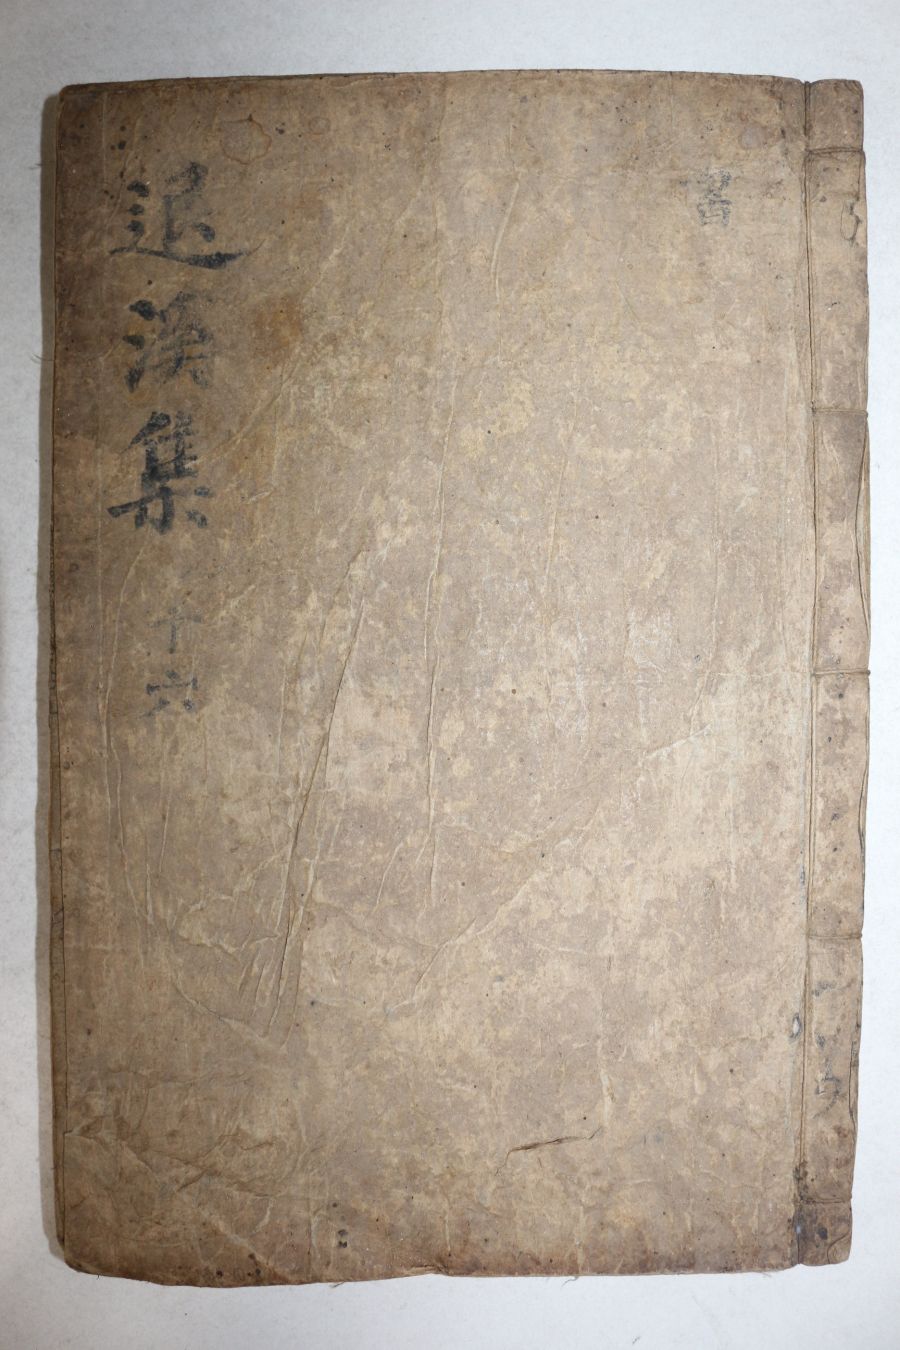 書
退溪集
十六